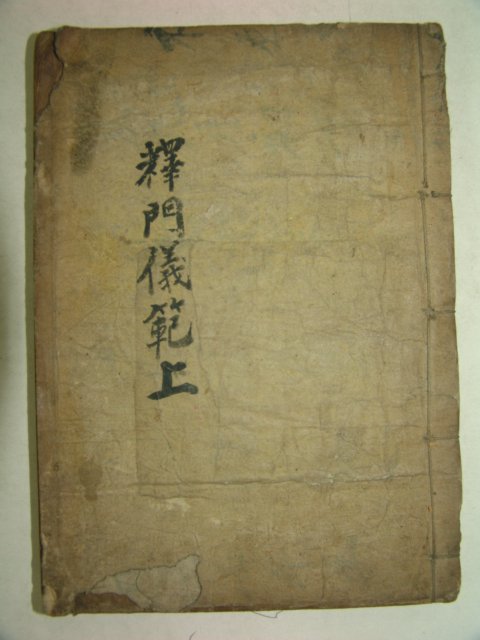 釋門儀範上